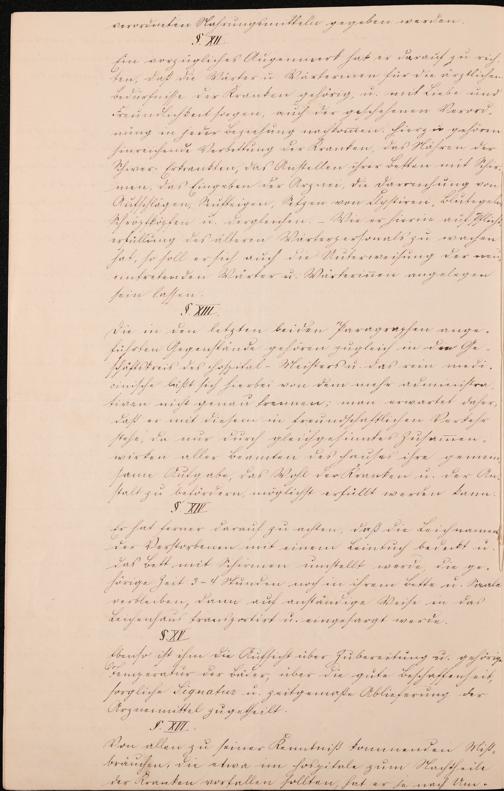 verordneten Nahrungsmitteln gegeben werden.
§ XII
Ein vorzügliches Augenmerk hat er darauf zu rich-
ten, daß die Wärter u. Wärterinnen für die ärztlichen
Bedürfnisse der Kranken gehörig, u. mit Liebe und
Freundlichkeit sorgen, auch der geschehenen Verord-
nung in jeder Beziehung nachkommen. Hierzu gehören
hinreichende Verbettung der Kranken, das Nähren der
Schwer-Erkrankten, das Anstellen ihrer Betten mit Schir-
men, das Eingeben der Arznei, die Darreichung von
Aufschlägen, Setzen von Clystiren, Blutegeln
Schröpfköpfen u. dergleichen. – Wie er hierin auf Pflicht-
erfüllung des älteren Wärterpersonals zu wachen
hat, so soll er sich auch die Unterweisung der neu
eintretenden Wärter u. Wärterinnen angelegen
sein lassen.
§ XIII.
Die in den letzten beiden Paragraphen ange-
führten Gegenstände gehören zugleich in den Ge-
schäftskreis des Hospital-Meisters u. das rein medi-
cinische läßt sich hierbei von dem mehr administra-
tiven nicht genau trennen; man erwartet daher,
daß er mit diesem in freundschaftlichen Verkehr
stehe, da nur durch gleichgesinntes Zusammen-
wirken aller Beamten des Hauses ihre gemein-
same Aufgabe, das Wohl der Kranken u. der An-
stalt zu befördern, möglichst erfüllt werden kann.
§ XIV
Er hat ferner darauf zu achten, daß die Leichname
der Verstorbenen mit einem Leintuch bedeckt u.
das Bett mit Schirmen umstellt werde, die ge-
hörige Zeit 3-4 Stunden noch in ihrem Bette u. Saale
verbleiben, dann auf anständige Weise in das
Leichenhaus transportirt u. eingesargt werde.
§ XV
Ebenso ist ihm die Aufsicht über Zubereitung u. gehörige
Temperatur der Bäder, über die gute Beschaffenheit,
sorgliche Signatur u. zeitgemäße Ablieferung der
Arzneimittel zugetheilt.
§ XVI.
Von allen zu seiner Kenntniß kommenden Miß-
bräuchen, die etwa im Hospitale zum Nachtheile
der Kranken vorfallen sollten, hat er je nach Um-